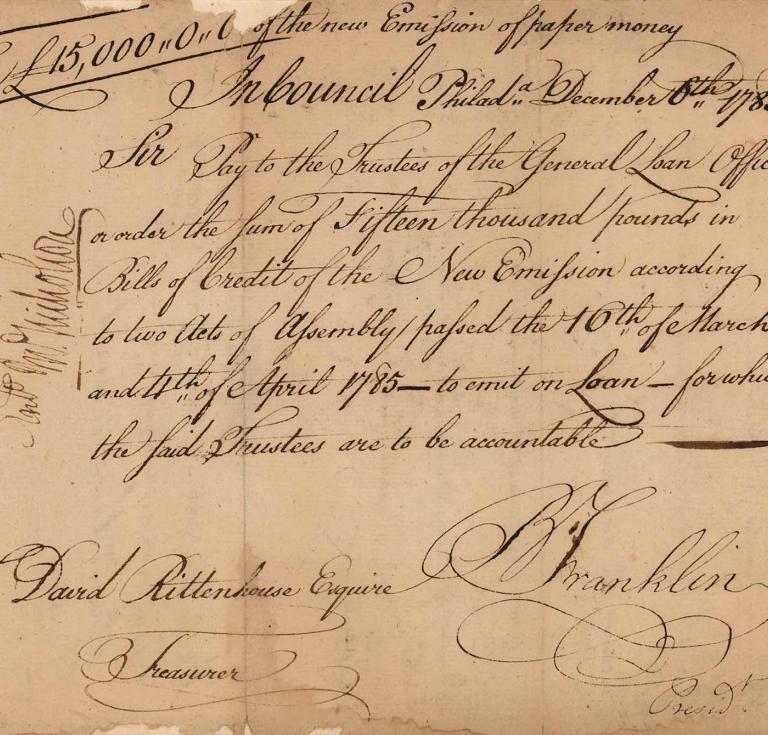 £15,000,,0,,0 of the new Emission of paper money
In Council Philad,,a December 8th 178
Sir Pay to the Trustees of the General Loan Offic
or order the Sum of Fifteen thousand pounds in
Bills of Credit of the New Emission according
to two Acts of Assembly passed the 16th of March
and 4th of April 1785 — to emit on Loan — for whic
the said Trustees are to be accountable
B Franklin
David Rittenhouse Esquire
Treasurer
Presidt
Jno Nicholson